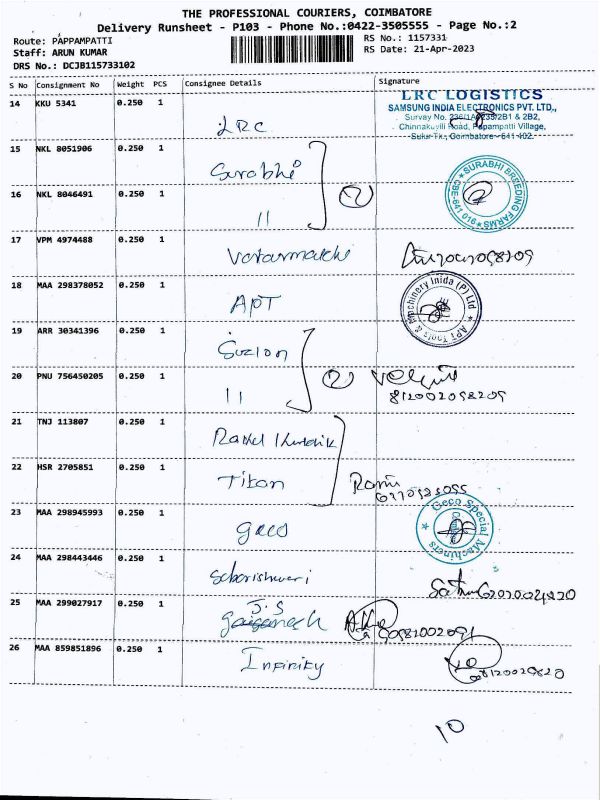 THE PROFESSIONAL COURIERS, COIMBATORE
Delivery Runsheet - P103 - Phone No.:0422-3505555 - Page No.:2
Route: PAPPAMPATTI
RS No.: 1157331
Staff: ARUN KUMAR
RS Date: 21-Apr-2023
DRS No.: DCJB115733102
S No Consignment No Weight PCS Consignee Details Signature
14 KKU 5341 0.250 1 LRC
LRC LOGISTICS
SAMSUNG INDIA ELECTRONICS PVT. LTD.,
Survay No. 2B1 & 2B2,
Chinnakuyili Road, Papampatti Village,
Sulur Tk., Coimbatore - 641 402.
15 NKL 8051906 0.250 1 Surabhi
SURABHI BREEDING FARMS
CBE-641 016
16 NKL 8046491 0.250 1 11 2
17 VPM 4974488 0.250 1
18 MAA 298378052 0.250 1 APT
APT Tools & Machinery Inida (P) Ltd
19 ARR 30341396 0.250 1 Suzlon
20 PNU 756450205 0.250 1 11 2
21 TNJ 113807 0.250 1
22 HSR 2705851 0.250 1 Titon
23 MAA 298945993 0.250 1 geco
Geco Special Machiners
24 MAA 298443446 0.250 1
25 MAA 299027917 0.250 1 J.S
26 MAA 859851896 0.250 1 Infinity
10